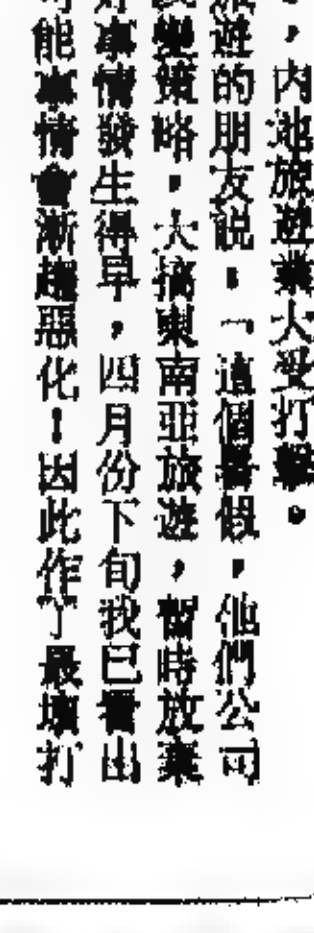 ，內地旅遊業大受打擊。
遊的朋友說：「這個暑假，他們公司
變策略，大搞東南亞旅遊，暫時放棄
事情發生得早，四月份下旬我已看出
能事情會漸趨惡化！因此作了最壞打